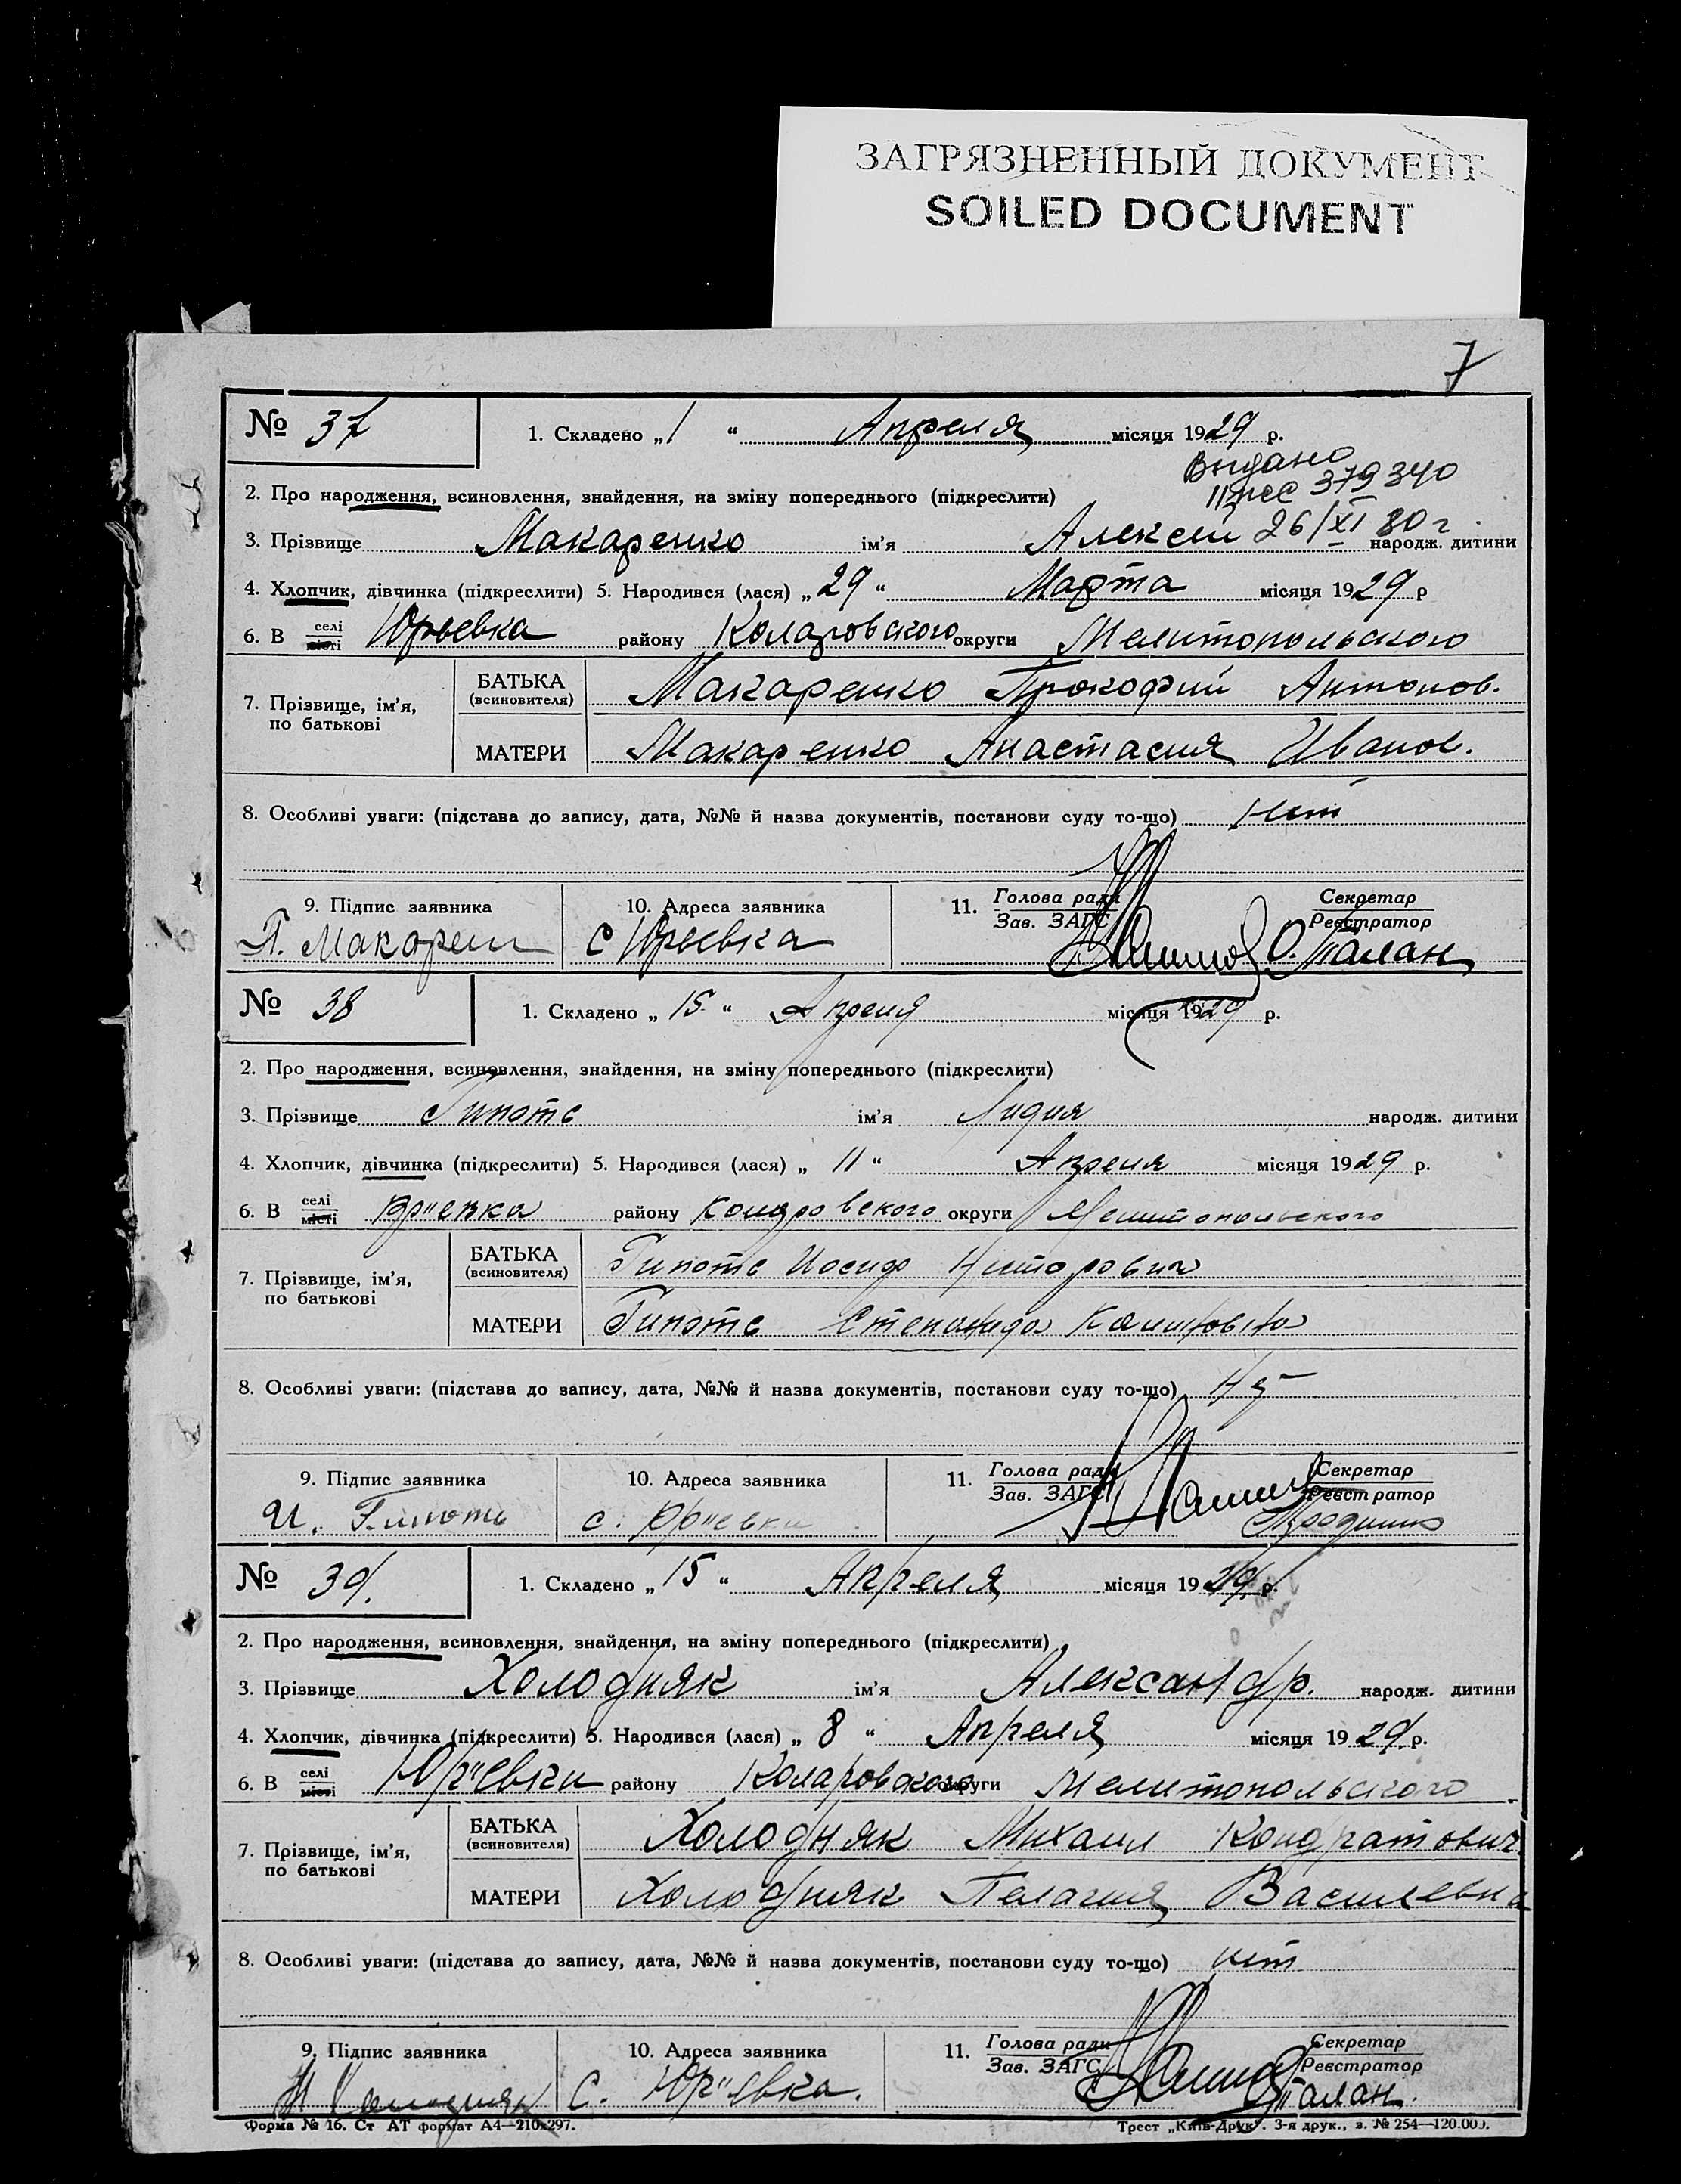 ЗАГРЯЗНЕННЫЙ ДОКУМЕНТ
SOILED DOCUMENT
7
№ 37
1. Складено „1“ Апреля місяця 1929 р.
Выдано
379340
26/XI 80 г.
2. Про народження, всиновлення, знайдення, на зміну попереднього (підкреслити)
3. Прізвище Макаренко ім'я Алексей народж. дитини
4. Хлопчик, дівчинка (підкреслити) 5. Народився (лася) „29“ Марта місяця 1929 р
6. В селі місті Юрьевка району Коларовского округи Мелитопольского
7. Прізвище, ім'я, по батькові
БАТЬКА (всиновителя) Макаренко Прокофий Антонов.
МАТЕРИ Макаренко Анастасия Иванов.
8. Особливі уваги: (підстава до запису, дата, №№ й назва документів, постанови суду то-що) нет
9. Підпис заявника 10. Адреса заявника 11. Голова ради Зав. ЗАГС Секретар Реєстратор
П. Макарен с Юрьевка О. Талан
№ 38
1. Складено „15“ Апреля місяця 1929 р.
2. Про народження, всиновлення, знайдення, на зміну попереднього (підкреслити)
3. Прізвище Гипоть ім'я Лидия народж. дитини
4. Хлопчик, дівчинка (підкреслити) 5. Народився (лася) „11“ Апреля місяця 1929 р.
6. В селі місті Юр"евка району Коларовского округи Мелитопольского
7. Прізвище, ім'я, по батькові
БАТЬКА (всиновителя) Гипоть Иосиф
МАТЕРИ Гипоть Степанида
8. Особливі уваги: (підстава до запису, дата, №№ й назва документів, постанови суду то-що)
9. Підпис заявника 10. Адреса заявника 11. Голова ради Зав. ЗАГС Секретар Реєстратор
И. Гипоть с. Юр"евка
№ 39.
1. Складено „15“ Апреля місяця 1929 р.
2. Про народження, всиновлення, знайдення, на зміну попереднього (підкреслити)
3. Прізвище Холодняк ім'я Александр. народж. дитини
4. Хлопчик, дівчинка (підкреслити) 5. Народився (лася) „8“ Апреля місяця 1929 р.
6. В селі місті Юр"евка району Коларовского округи Мелитопольского
7. Прізвище, ім'я, по батькові
БАТЬКА (всиновителя) Холодняк Михаил Кондратович
МАТЕРИ Холодняк Пелагия Василевна
8. Особливі уваги: (підстава до запису, дата, №№ й назва документів, постанови суду то-що) нет
9. Підпис заявника 10. Адреса заявника 11. Голова ради Зав. ЗАГС Секретар Реєстратор
с. Юр"евка. Талан.
Форма № 16. Ст АТ формат А4—210х297. Трест „Київ-Друк“. 3-я друк., з. № 254—120.000.